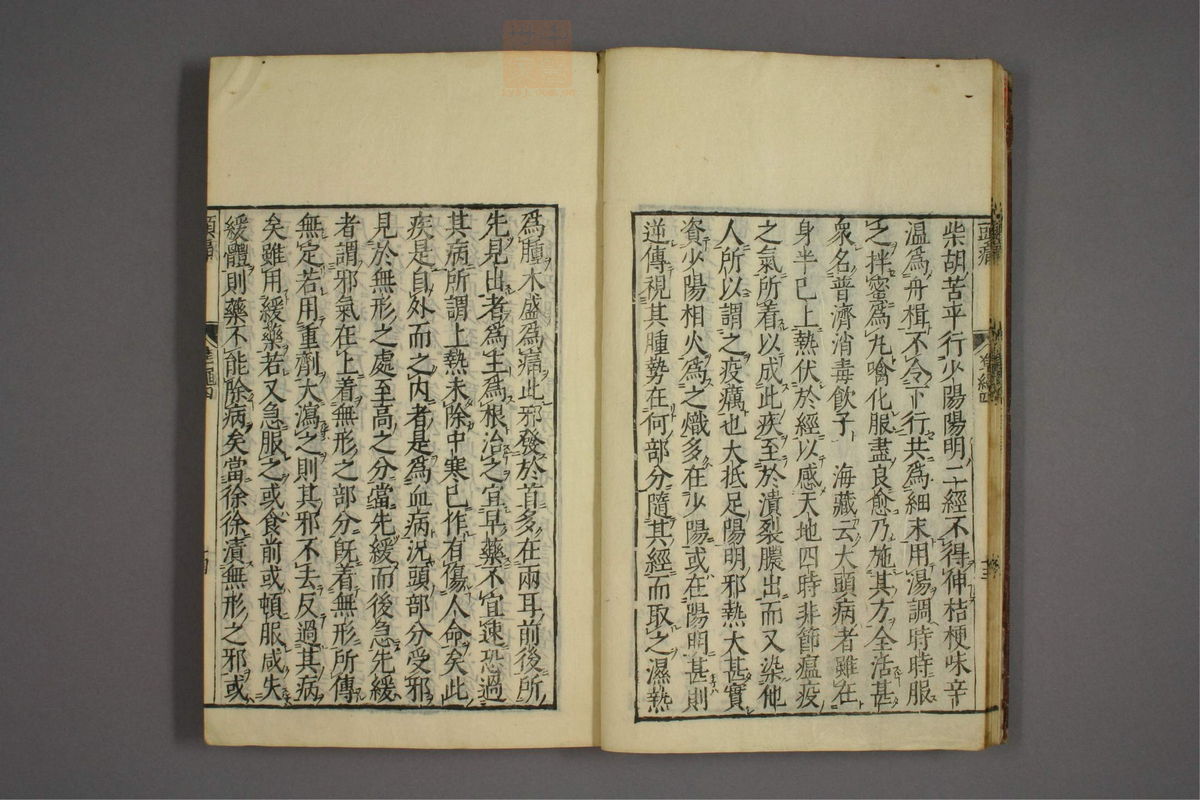 柴胡苦平行少陽陽明二經不得伸桔梗味辛
温爲舟楫不令下行共爲細末用湯調時時服
之拌蜜爲丸噙化服盡良愈乃施其方全活甚
衆名普濟消毒飲子　海藏云大頭病者雖在
身半已上熱伏於經以感天地四時非節瘟疫
之氣所着以成此疾至於潰裂膿出而又染他
人所以謂之疫癘也大抵足陽明邪熱大甚實
資少陽相火爲之熾多在少陽或在陽明甚則
逆傳視其腫勢在何部分隨其經而取之濕熱
爲腫木盛爲痛此邪發於首多在兩耳前後所
先見出者爲主爲根治之宜早藥不宜速恐過
其病所謂上熱未除中寒已作有傷人命矣此
疾是自外而之内者是爲血病況頭部分受邪
見於無形之處至高之分當先緩而後急先緩
者謂邪氣在上着無形之部分既着無形所傳
無定若用重劑大瀉之則其邪不去反過其病
矣雖用緩藥若又急服之或食前或頓服咸失
緩體則藥不能除病矣當徐徐漬無形之邪或